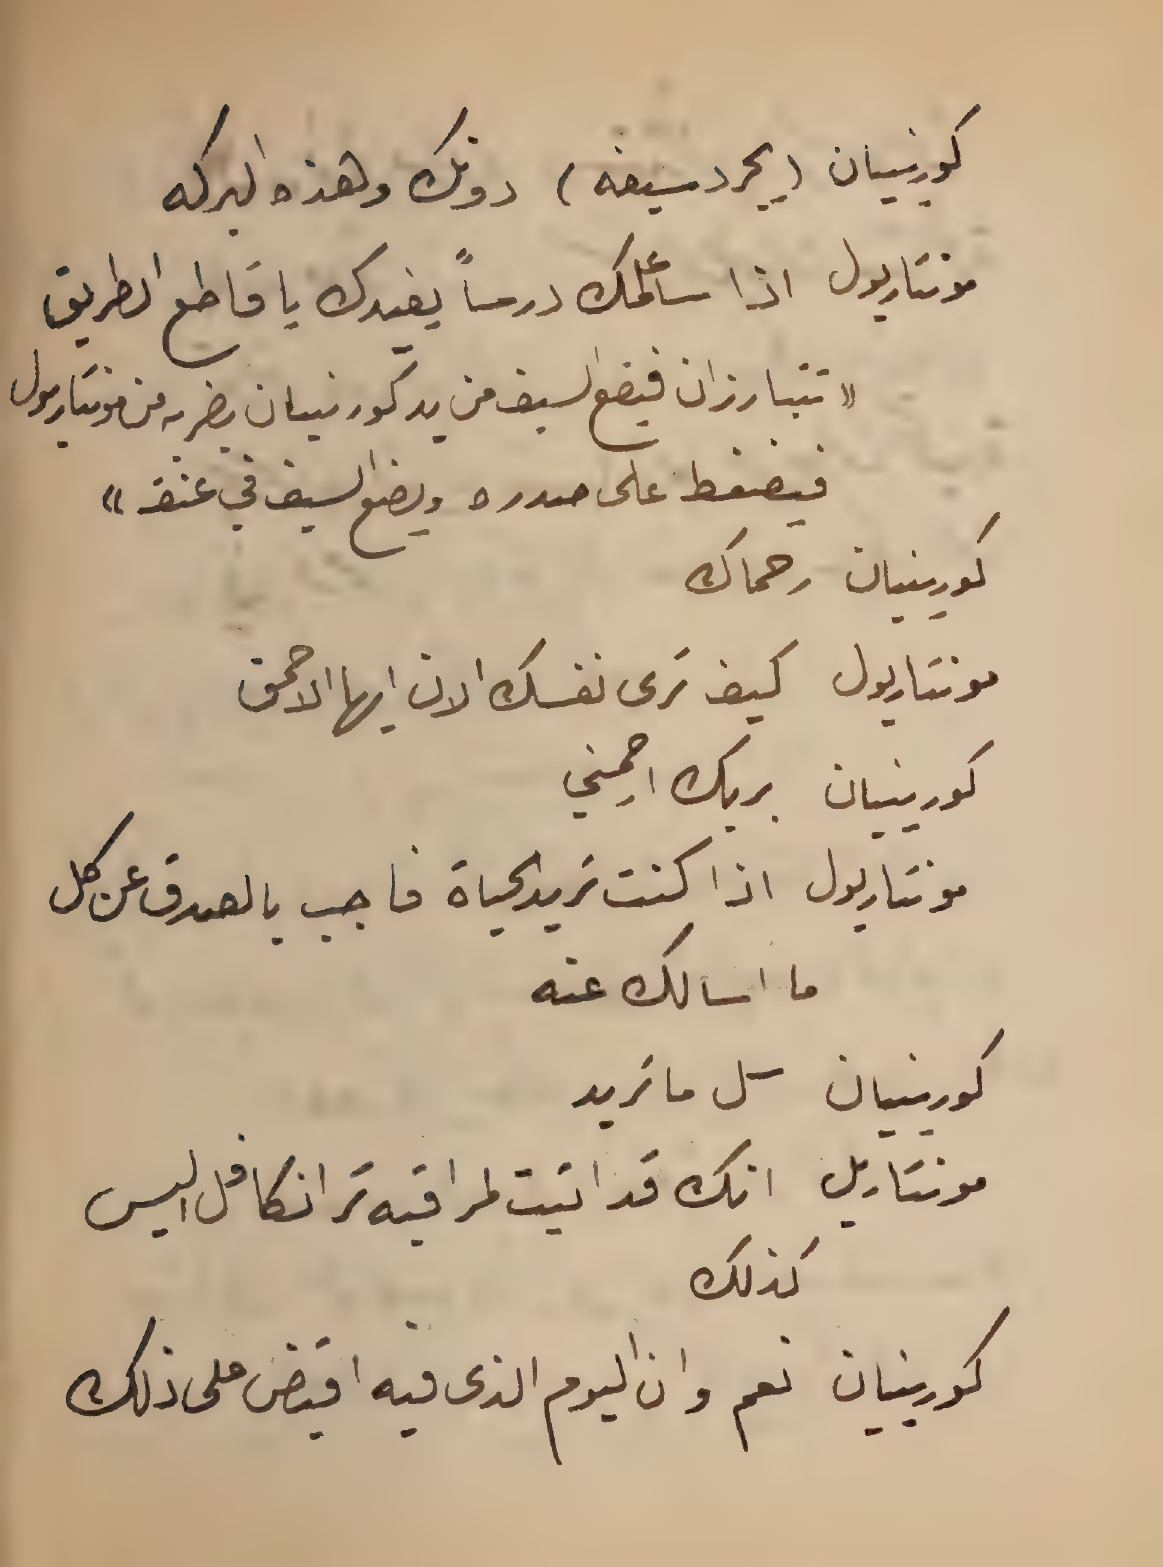 كورينيان (يجرد سيفه) دونك وهذه البركه
مونتاريول اذا سأعلمك درساً يفيدك يا قاطع الطريق
«تتبارزان فيقع السيف من يد كورنيان بضربه من مونتاريول
فيضغط على صدره ويضع السيف في عنقه»
كورينيان رحماك
مونتاريول كيف ترى نفسك الان ايها الاحمق
كورينيان بربك ارحمني
مونتاريول اذا كنت تريد الحياة فاجب بالصدق عن كل
ما اسالك عنه
كورينيان سل ما تريد
مونتاريل انك قد اتيت لمراقبه ترانكافل اليس
كذلك
كورينيان نعم وان اليوم الذى فيه اقبض على ذلك